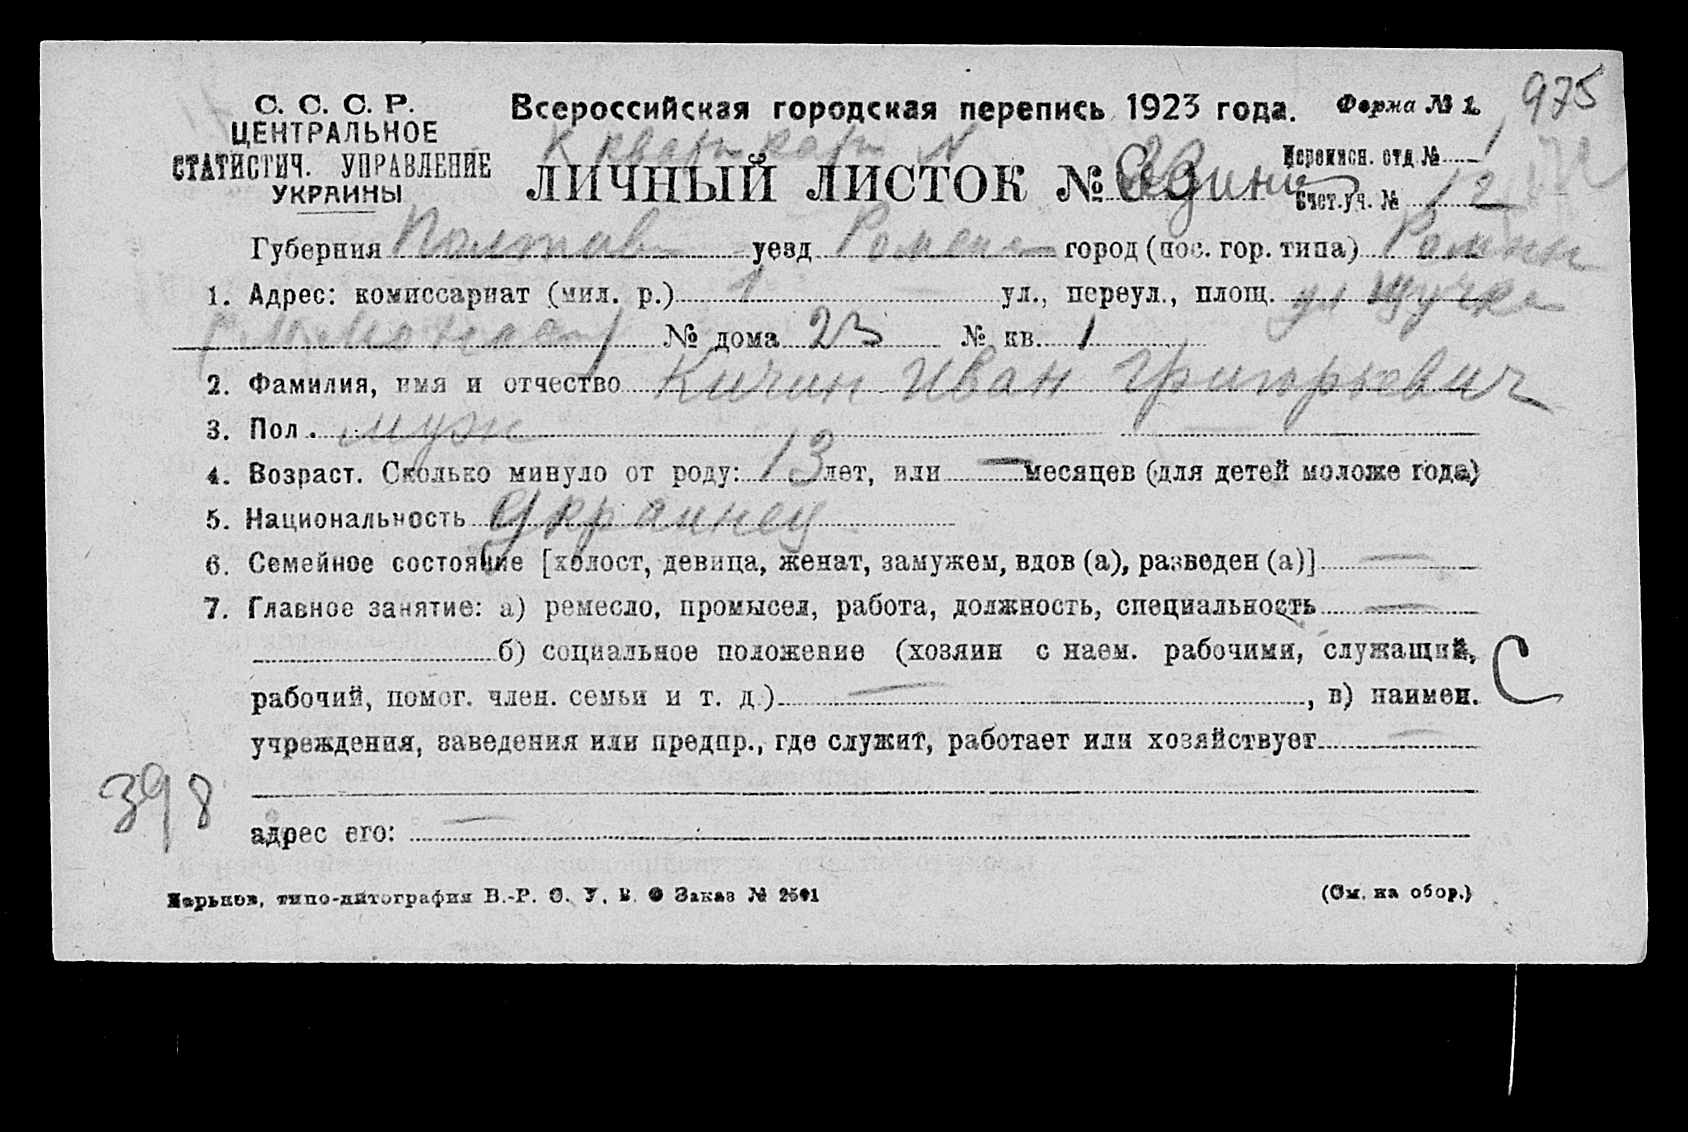 С. С. С. Р.
ЦЕНТРАЛЬНОЕ
СТАТИСТИЧ. УПРАВЛЕНИЕ
УКРАИНЫ
Всероссийская городская перепись 1923 года. Форма № 1. 975
К кварт карт №
ЛИЧНЫЙ ЛИСТОК №
Переписн. отд. № 1
Счет. уч. № 12
Губерния Полтав уезд Роменс город (пос. гор. типа) Ромны
1. Адрес: комиссариат (мил. р.) 1 ул., переул., площ. ул Щучки
№ дома 23 № кв. 1
2. Фамилия, имя и отчество Кичин Иван Григорьевич
3. Пол. муж
4. Возраст. Сколько минуло от роду: 13 лет, или — месяцев (для детей моложе года)
5. Национальность Украинец
6. Семейное состояние [холост, девица, женат, замужем, вдов (а), разведен (а)] —
7. Главное занятие: а) ремесло, промысел, работа, должность, специальность —
б) социальное положение (хозяин с наем. рабочими, служащий, С
рабочий, помог. член. семьи и т. д.) — , в) наимен.
учреждения, заведения или предпр., где служит, работает или хозяйствует —
398
адрес его: —
Харьков, типо-литография В.-Р. С. У. В. О Заказ № 2501 (См. на обор.)